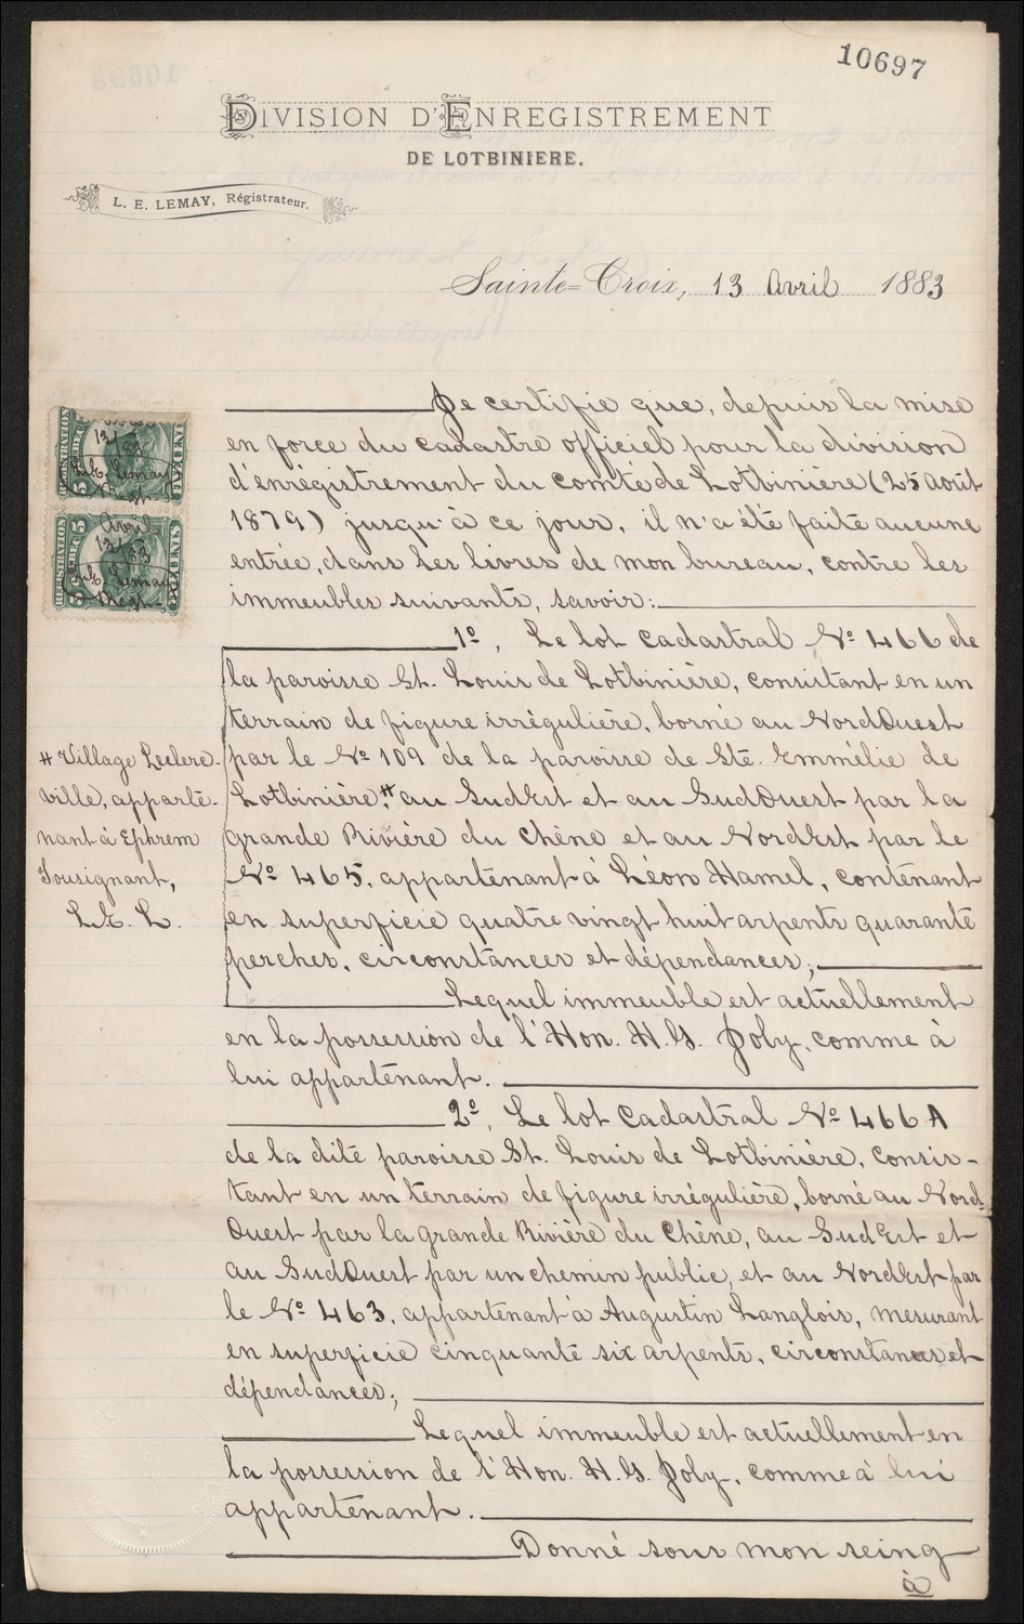 10697
DIVISION D'ENREGISTREMENT
DE LOTBINIERE.
L. E. LEMAY, Régistrateur.
Sainte=Croix, 13 Avril 1883
Je certifie que, depuis la mise
en force du cadastre officiel pour la division
d'enrégistrement du comté de Lotbinière (25 août
1879) jusqu'à ce jour, il n'a été faite aucune
entrée, dans les livres de mon bureau, contre les
immeubles suivants, savoir:
1º, Le lot cadastral Nº 466 de
la paroisse St. Louis de Lotbinière, consistant en un
terrain de figure irrégulière, borné au Nord Ouest
par le Nº 109 de la paroisse de Ste. Emmélie de
Lotbinière,# au Sud Est et au Sud Ouest par la
grande Rivière du Chêne et au Nord Est par le
Nº 465, appartenant à Léon Hamel, contenant
en superficie quatre vingt huit arpents quarante
perches, circonstances et dépendances;
Lequel immeuble est actuellement
en la possession de l'Hon. H. G. Joly, comme à
lui appartenant.
2º, Le lot cadastral Nº 466 A
de la dite paroisse St. Louis de Lotbinière, consis-
tant en un terrain de figure irrégulière, borné au Nord-
Ouest par la grande Rivière du Chêne, au Sud Est et
au Sud Ouest par un chemin public, et au Nord Est par
le Nº 463, appartenant à Augustin Langlois, mesurant
en superficie cinquante six arpents, circonstances et
dépendances;
Lequel immeuble est actuellement en
la possession de l'Hon. H. G. Joly, comme à lui
appartenant.
Donné sous mon seing
à
# Village Leclerc-
ville, apparte-
nant à Ephrem
Tousignant,
L. E. L.
REGISTRATION
QUEBEC
5
CENTS
13/
83
L. E. Lemay
Régt.
REGISTRATION
QUEBEC
5
CENTS
Avril
13/83
L. E. Lemay
Régt.